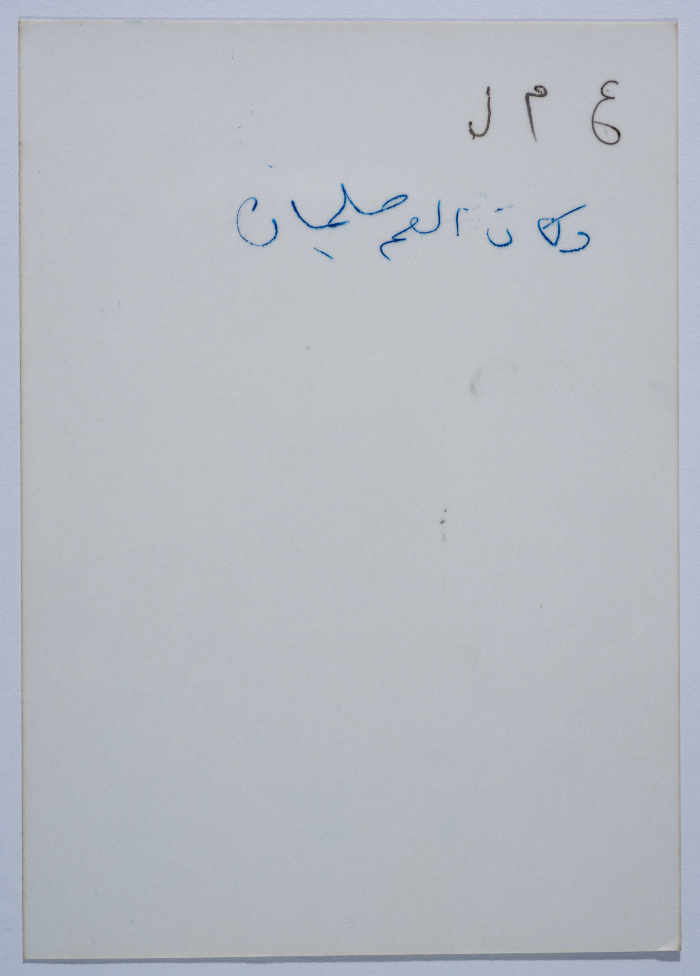 ع م ل
دكان العم سليمان